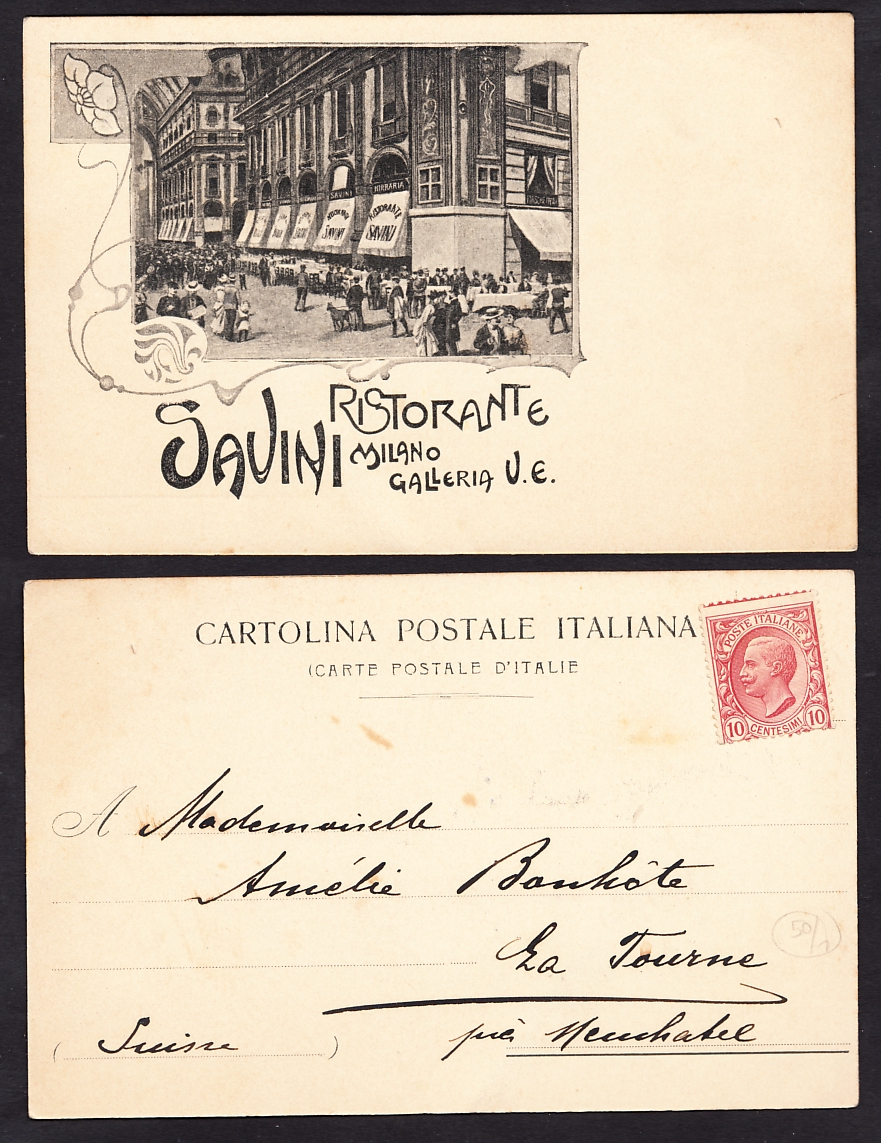 SAVINI
BIRRARIA
RISTORANTE
SAVINI
RISTORANTE
SAVINI
SAVINI RISTORANTE
MILANO
GALLERIA V.E.
CARTOLINA POSTALE ITALIANA
(CARTE POSTALE D'ITALIE
POSTE ITALIANE
10 CENTESIMI 10
A Mademoiselle
Amélie Bonhôte
La Tourne
50/
(Suisse) près Neuchatel